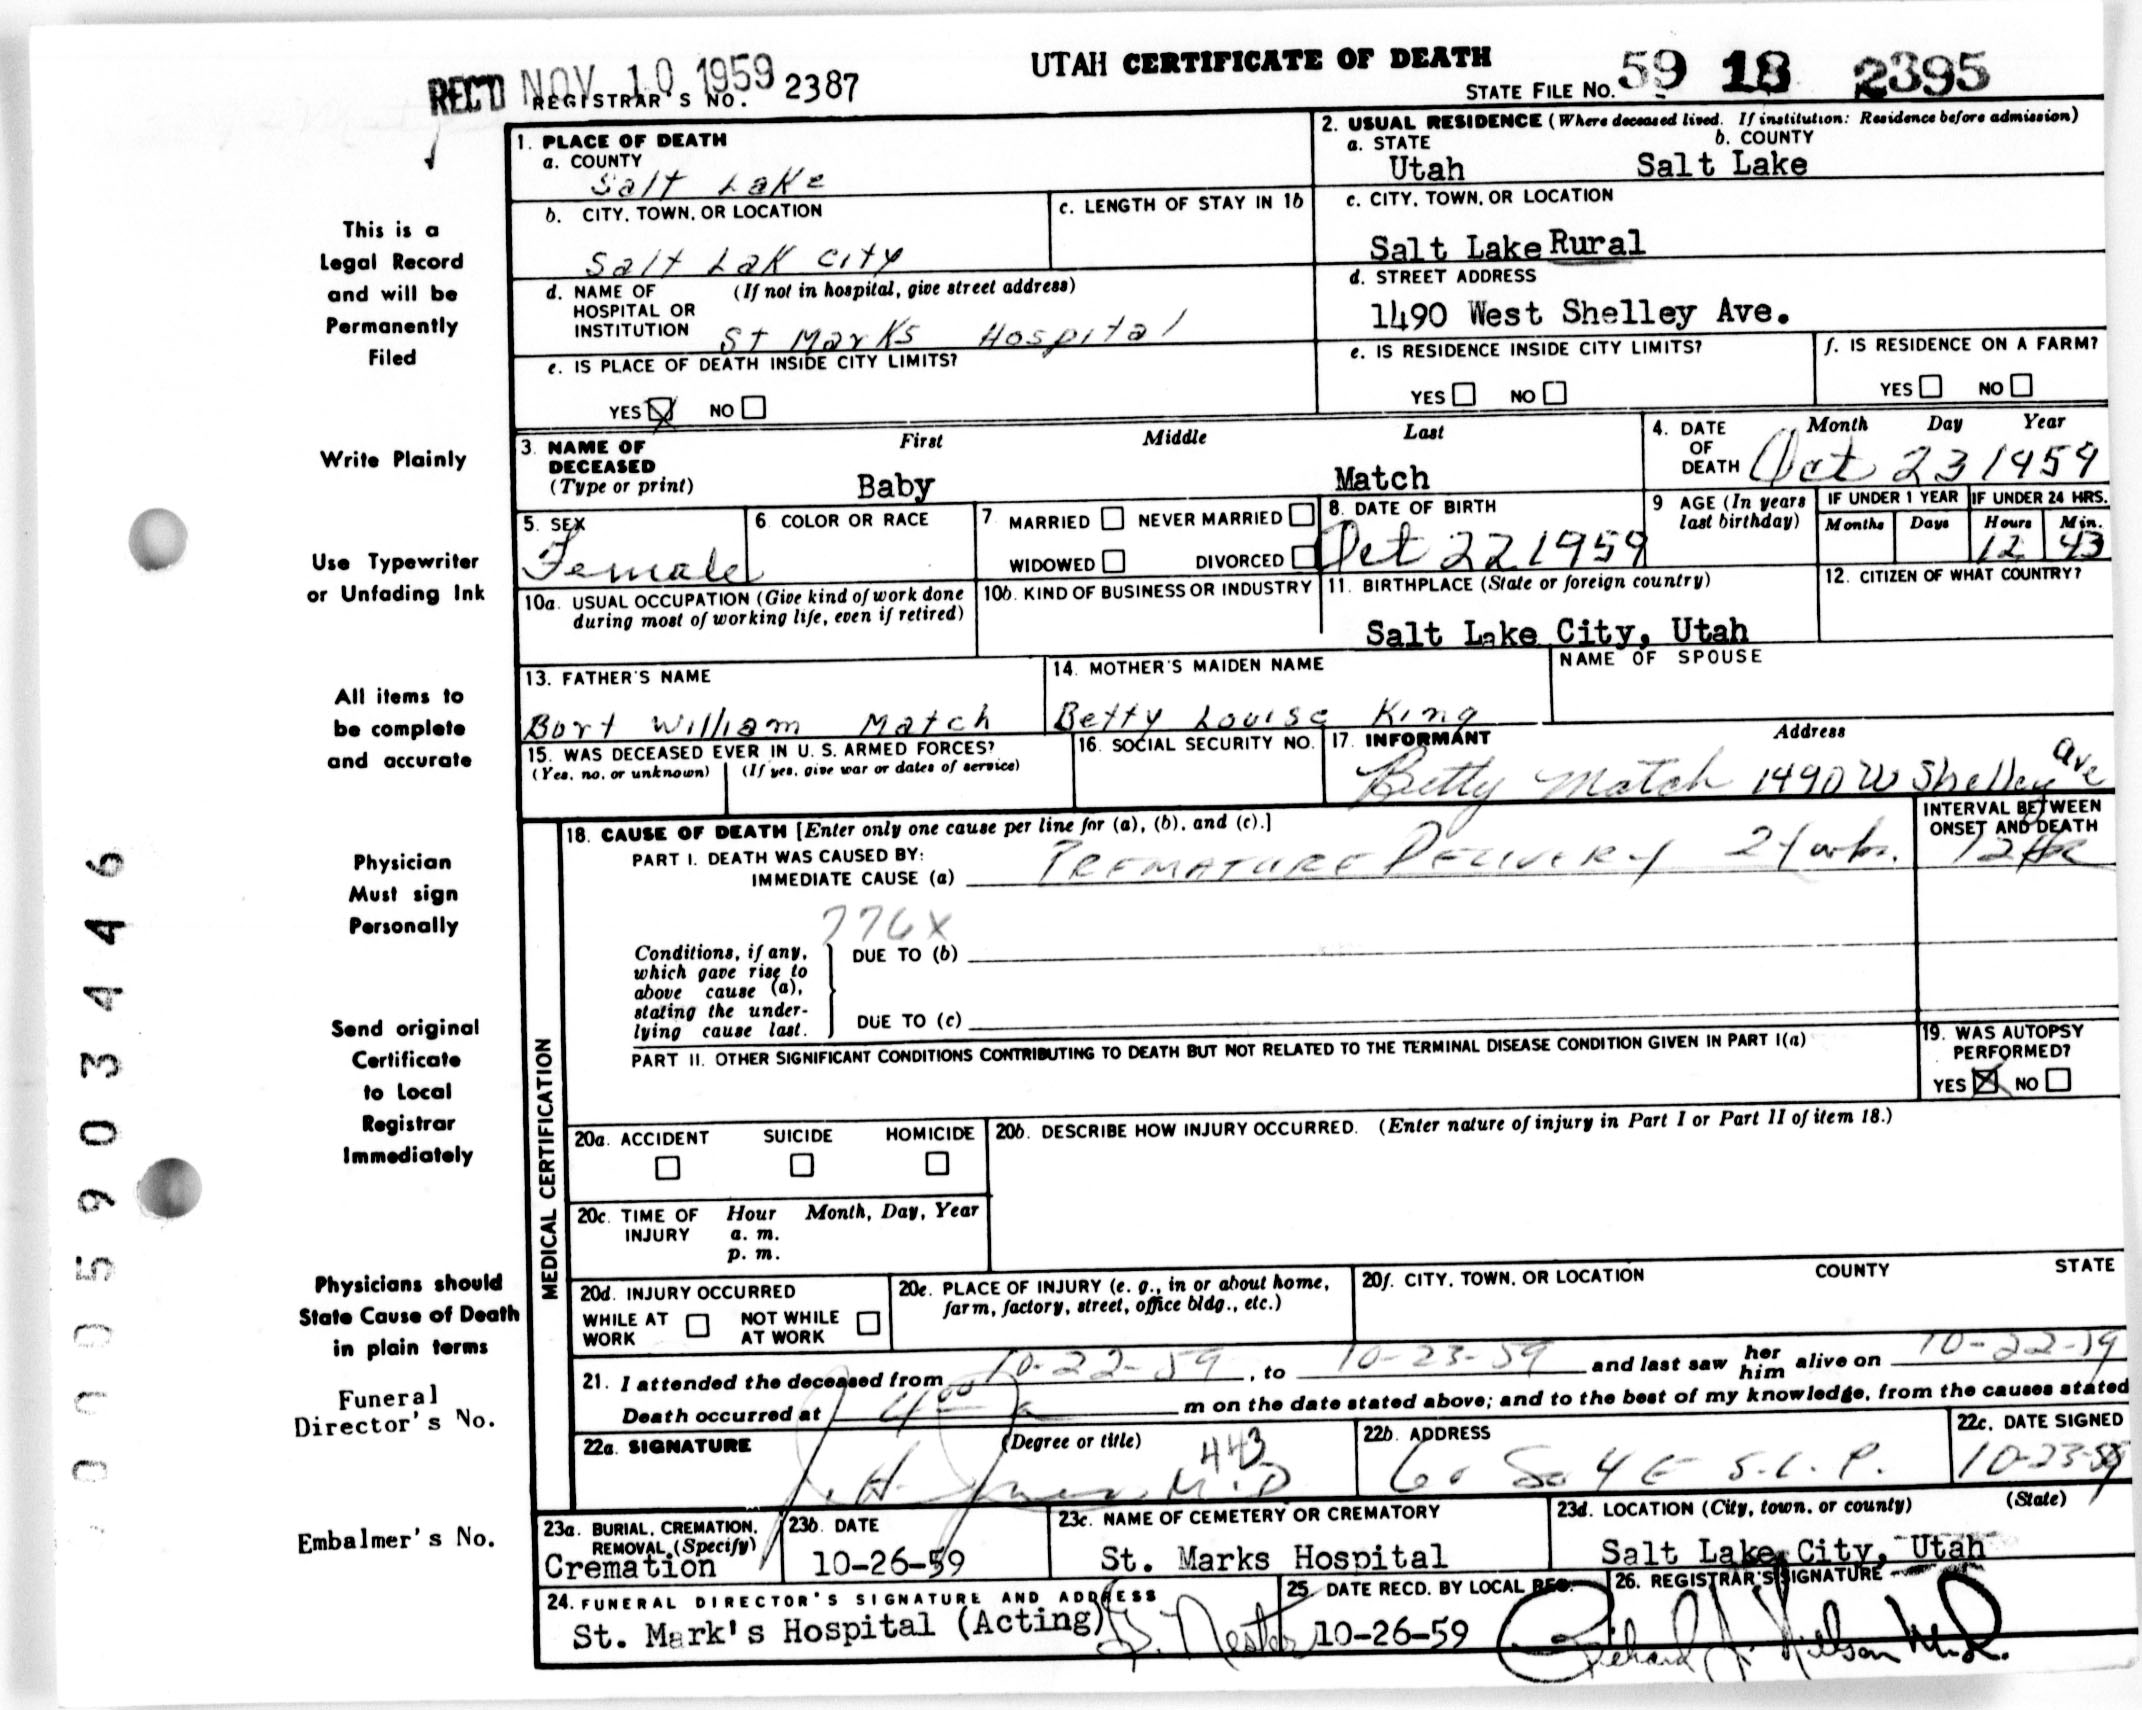 UTAH CERTIFICATE OF DEATH
REC'D NOV 10 1959
REGISTRAR'S NO. 2387
STATE FILE NO. 59 18 2395
This is a
Legal Record
and will be
Permanently
Filed
Write Plainly
Use Typewriter
or Unfading Ink
All items to
be complete
and accurate
Physician
Must sign
Personally
Send original
Certificate
to Local
Registrar
Immediately
Physicians should
State Cause of Death
in plain terms
Funeral
Director's No.
Embalmer's No.
1. PLACE OF DEATH
a. COUNTY
Salt Lake
b. CITY, TOWN, OR LOCATION
Salt Lak City
c. LENGTH OF STAY IN 1b
d. NAME OF (If not in hospital, give street address)
HOSPITAL OR
INSTITUTION St Marks Hospital
e. IS PLACE OF DEATH INSIDE CITY LIMITS?
YES NO
2. USUAL RESIDENCE (Where deceased lived. If institution: Residence before admission)
a. STATE b. COUNTY
Utah Salt Lake
c. CITY, TOWN, OR LOCATION
Salt Lake Rural
d. STREET ADDRESS
1490 West Shelley Ave.
e. IS RESIDENCE INSIDE CITY LIMITS?
YES NO
f. IS RESIDENCE ON A FARM?
YES NO
3. NAME OF First Middle Last
DECEASED
(Type or print) Baby Match
4. DATE Month Day Year
OF
DEATH Oct 23 1959
5. SEX
Female
6. COLOR OR RACE
7. MARRIED NEVER MARRIED
WIDOWED DIVORCED
8. DATE OF BIRTH
Oct 22 1959
9 AGE (In years
last birthday)
IF UNDER 1 YEAR
Months Days
IF UNDER 24 HRS.
Hours Min.
12 43
10a. USUAL OCCUPATION (Give kind of work done
during most of working life, even if retired)
10b. KIND OF BUSINESS OR INDUSTRY
11. BIRTHPLACE (State or foreign country)
Salt Lake City, Utah
12. CITIZEN OF WHAT COUNTRY?
13. FATHER'S NAME
Bort William Match
14. MOTHER'S MAIDEN NAME
Betty Louise King
NAME OF SPOUSE
15. WAS DECEASED EVER IN U. S. ARMED FORCES?
(Yes, no, or unknown) (If yes, give war or dates of service)
16. SOCIAL SECURITY NO.
17. INFORMANT Address
Betty Match 1490 W Shelley Ave
MEDICAL CERTIFICATION
18. CAUSE OF DEATH [Enter only one cause per line for (a), (b), and (c).]
PART I. DEATH WAS CAUSED BY:
IMMEDIATE CAUSE (a) PREMATURE DELIVERY
INTERVAL BETWEEN
ONSET AND DEATH
12 Hr
776X
Conditions, if any,
which gave rise to
above cause (a),
stating the under-
lying cause last.
DUE TO (b)
DUE TO (c)
PART II. OTHER SIGNIFICANT CONDITIONS CONTRIBUTING TO DEATH BUT NOT RELATED TO THE TERMINAL DISEASE CONDITION GIVEN IN PART I(a)
19. WAS AUTOPSY
PERFORMED?
YES NO
20a. ACCIDENT SUICIDE HOMICIDE
20b. DESCRIBE HOW INJURY OCCURRED. (Enter nature of injury in Part I or Part II of item 18.)
20c. TIME OF Hour Month, Day, Year
INJURY a. m.
p. m.
20d. INJURY OCCURRED
WHILE AT NOT WHILE
WORK AT WORK
20e. PLACE OF INJURY (e. g., in or about home,
farm, factory, street, office bldg., etc.)
20f. CITY, TOWN, OR LOCATION COUNTY STATE
21. I attended the deceased from 10-22-59, to 10-23-59 and last saw her him alive on 10-22-59
Death occurred at 4 00 a m on the date stated above; and to the best of my knowledge, from the causes stated
22a. SIGNATURE (Degree or title)
443
M.D
22b. ADDRESS
So 4 E S.L.
22c. DATE SIGNED
10-23-59
23a. BURIAL, CREMATION,
REMOVAL (Specify)
Cremation
23b. DATE
10-26-59
23c. NAME OF CEMETERY OR CREMATORY
St. Marks Hospital
23d. LOCATION (City, town, or county) (State)
Salt Lake City, Utah
24. FUNERAL DIRECTOR'S SIGNATURE AND ADDRESS
St. Mark's Hospital (Acting)
25. DATE RECD. BY LOCAL REG.
10-26-59
26. REGISTRAR'S SIGNATURE
Richard A. Nielson M.D.
0000 5903446